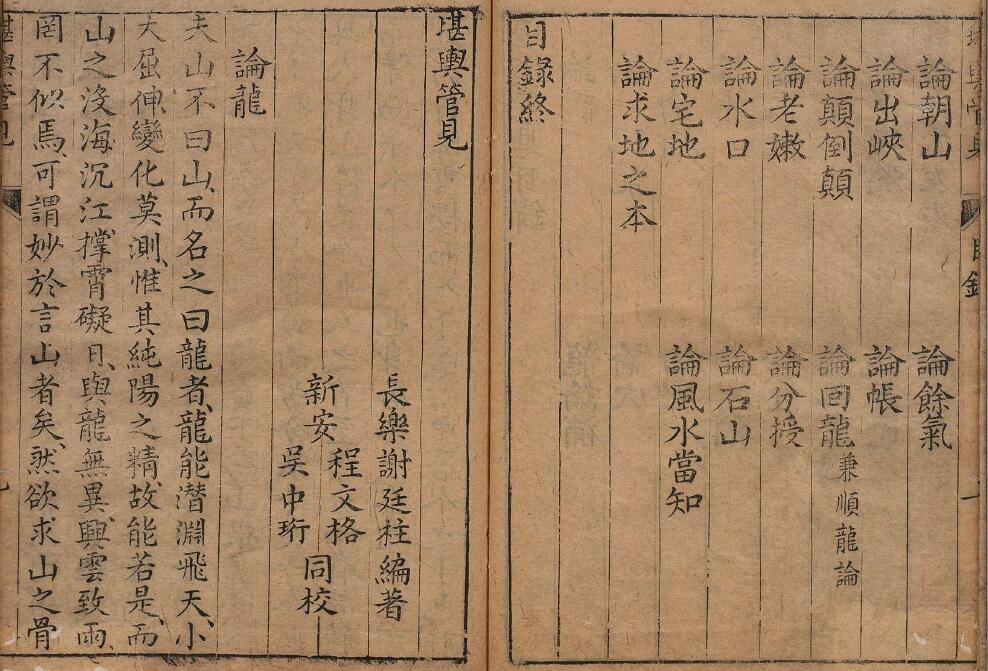 論朝山 論餘氣
論出峽 論帳
論顛倒顛 論回龍兼順龍論
論老嫩 論分授
論水口 論石山
論宅地 論風水當知
論求地之本
目錄終
堪輿管見
長樂謝廷柱編著
新安
程文格
吳中珩
同校
論龍
夫山不曰山、而名之曰龍者、龍能潛淵飛天、小
大屈伸、變化莫測、惟其純陽之精、故能若是、而
山之沒海沉江、撑霄礙日、與龍無異、興雲致雨、
罔不似焉、可謂妙於言山者矣、然欲求山之骨